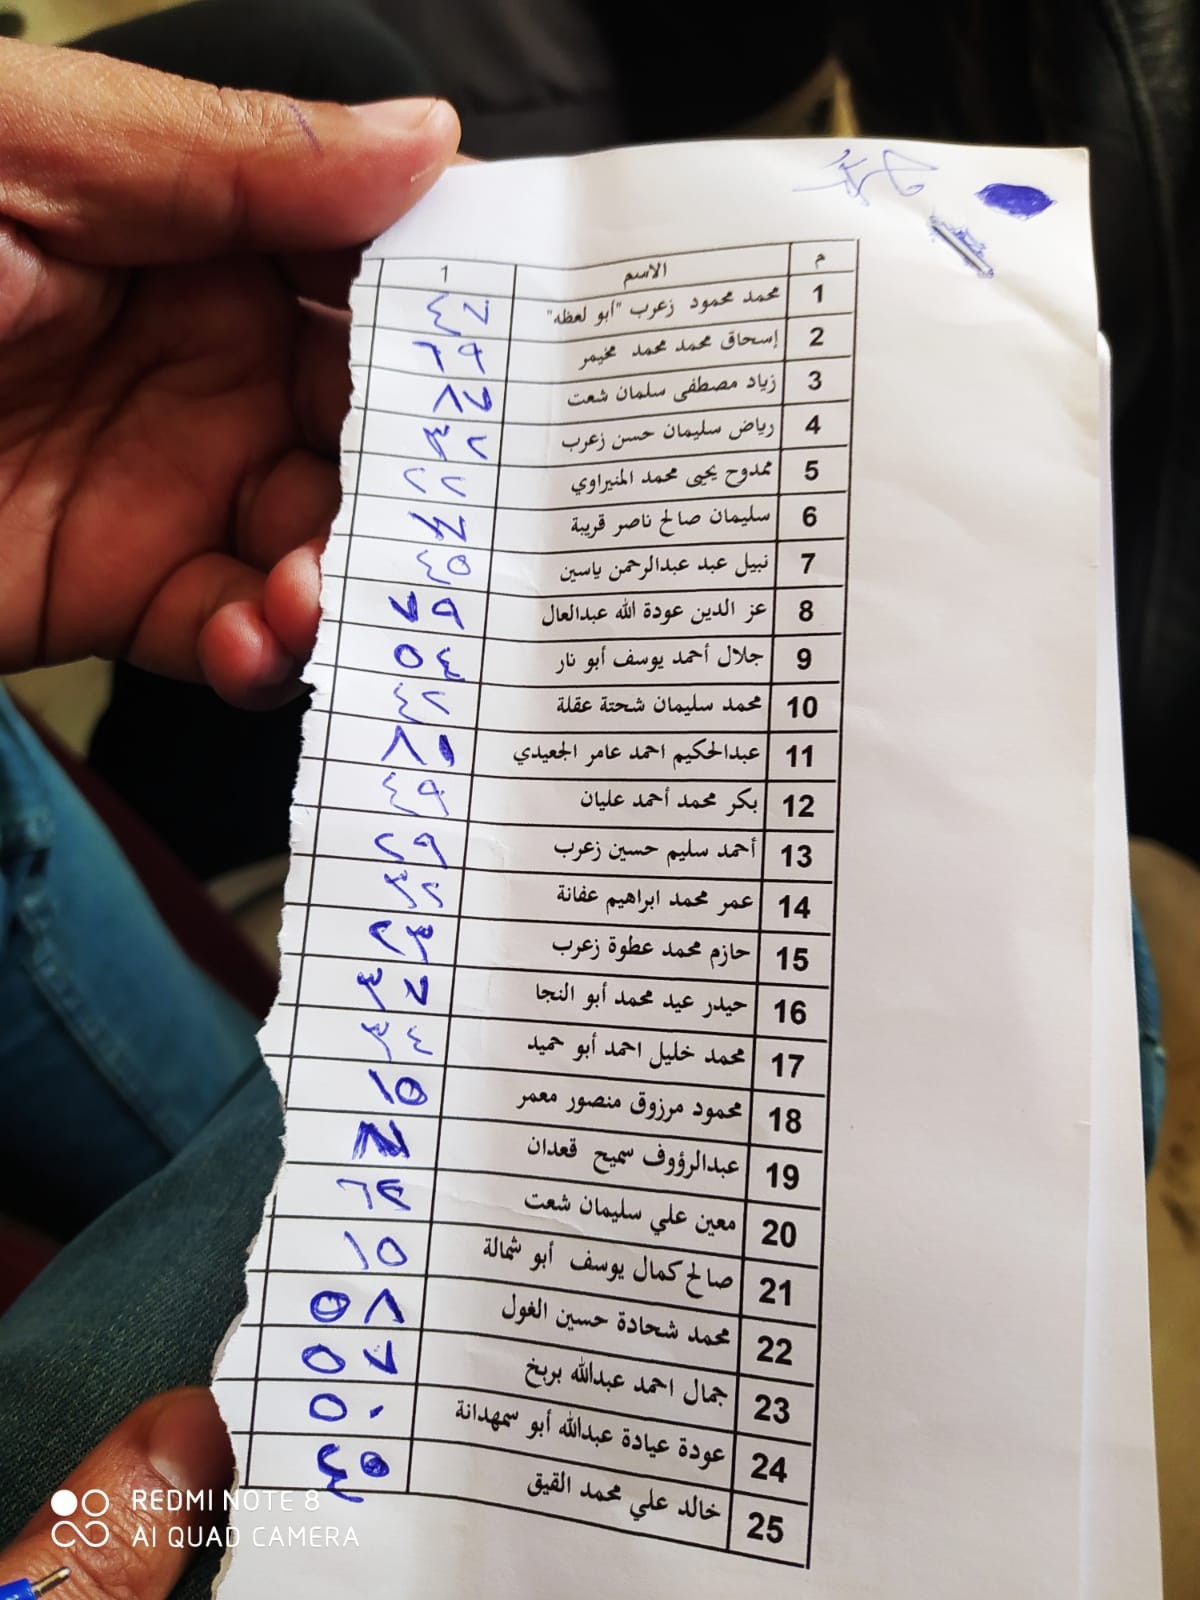 م الاسم 1
1 محمد محمود زعرب "أبو لعظه" ٤٧
2 إسحاق محمد محمد مخيمر ٦٩
3 زياد مصطفى سلمان شعت ٨٧
4 رياض سليمان حسن زعرب ٣٢
5 ممدوح يحيى محمد المنيراوي ٢٢
6 سليمان صالح ناصر قريبة
7 نبيل عبد عبدالرحمن ياسين ٤٥
8 عز الدين عودة الله عبدالعال ٧٩
9 جلال أحمد يوسف أبو نار ٥٤
10 محمد سليمان شحتة عقلة ٤٢
11 عبدالحكيم احمد عامر الجعيدي ٨١
12 بكر محمد أحمد عليان ٤٩
13 أحمد سليم حسين زعرب ٢٩
14 عمر محمد ابراهيم عفانة ٣٢
15 حازم محمد عطوة زعرب ٢٣
16 حيدر عيد محمد أبو النجا ٣٧
17 محمد خليل احمد أبو حميد ٣٤
18 محمود مرزوق منصور معمر ١٥
19 عبدالرؤوف سميح قعدان
20 معين علي سليمان شعت ٦٢
21 صالح كمال يوسف أبو شمالة ١٥
22 محمد شحادة حسين الغول ٥٨
23 جمال احمد عبدالله بربخ ٥٧
24 عودة عيادة عبدالله أبو سمهدانة ٥٠
25 خالد علي محمد القيق ٤٥
REDMI NOTE 8
AI QUAD CAMERA